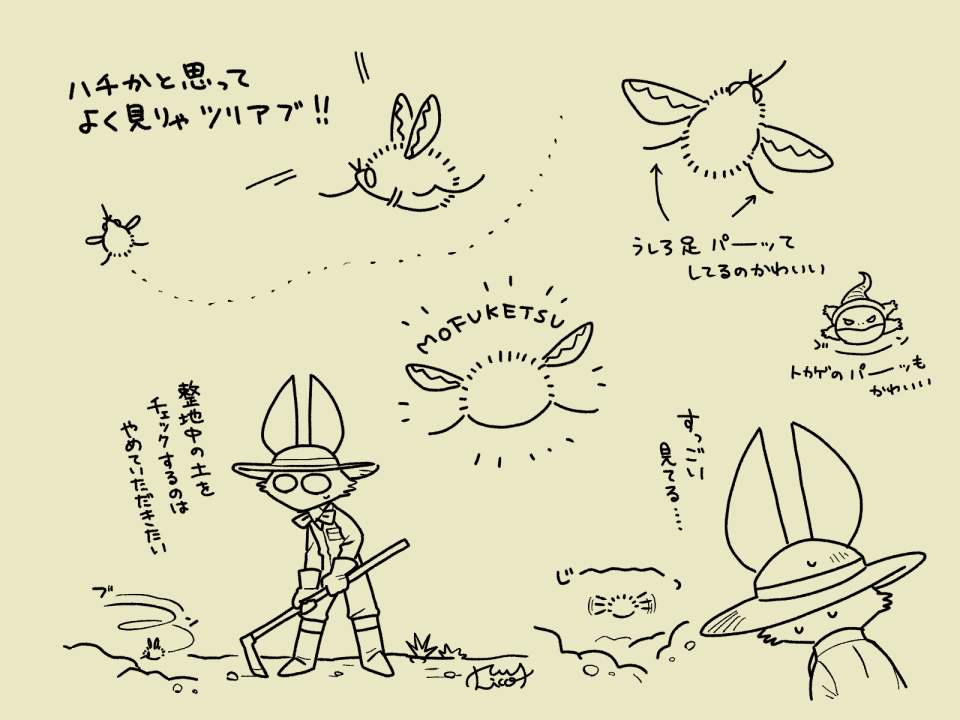 ハチかと思って
よく見りゃツリアブ!!
うしろ足パーッて
してるのかわいい
MOFUKETSU
ブーン
トカゲのパーッも
かわいい
整地中の土を
チェックするのは
やめていただきたい
ブーン
すっごい
見てる……
じーっ